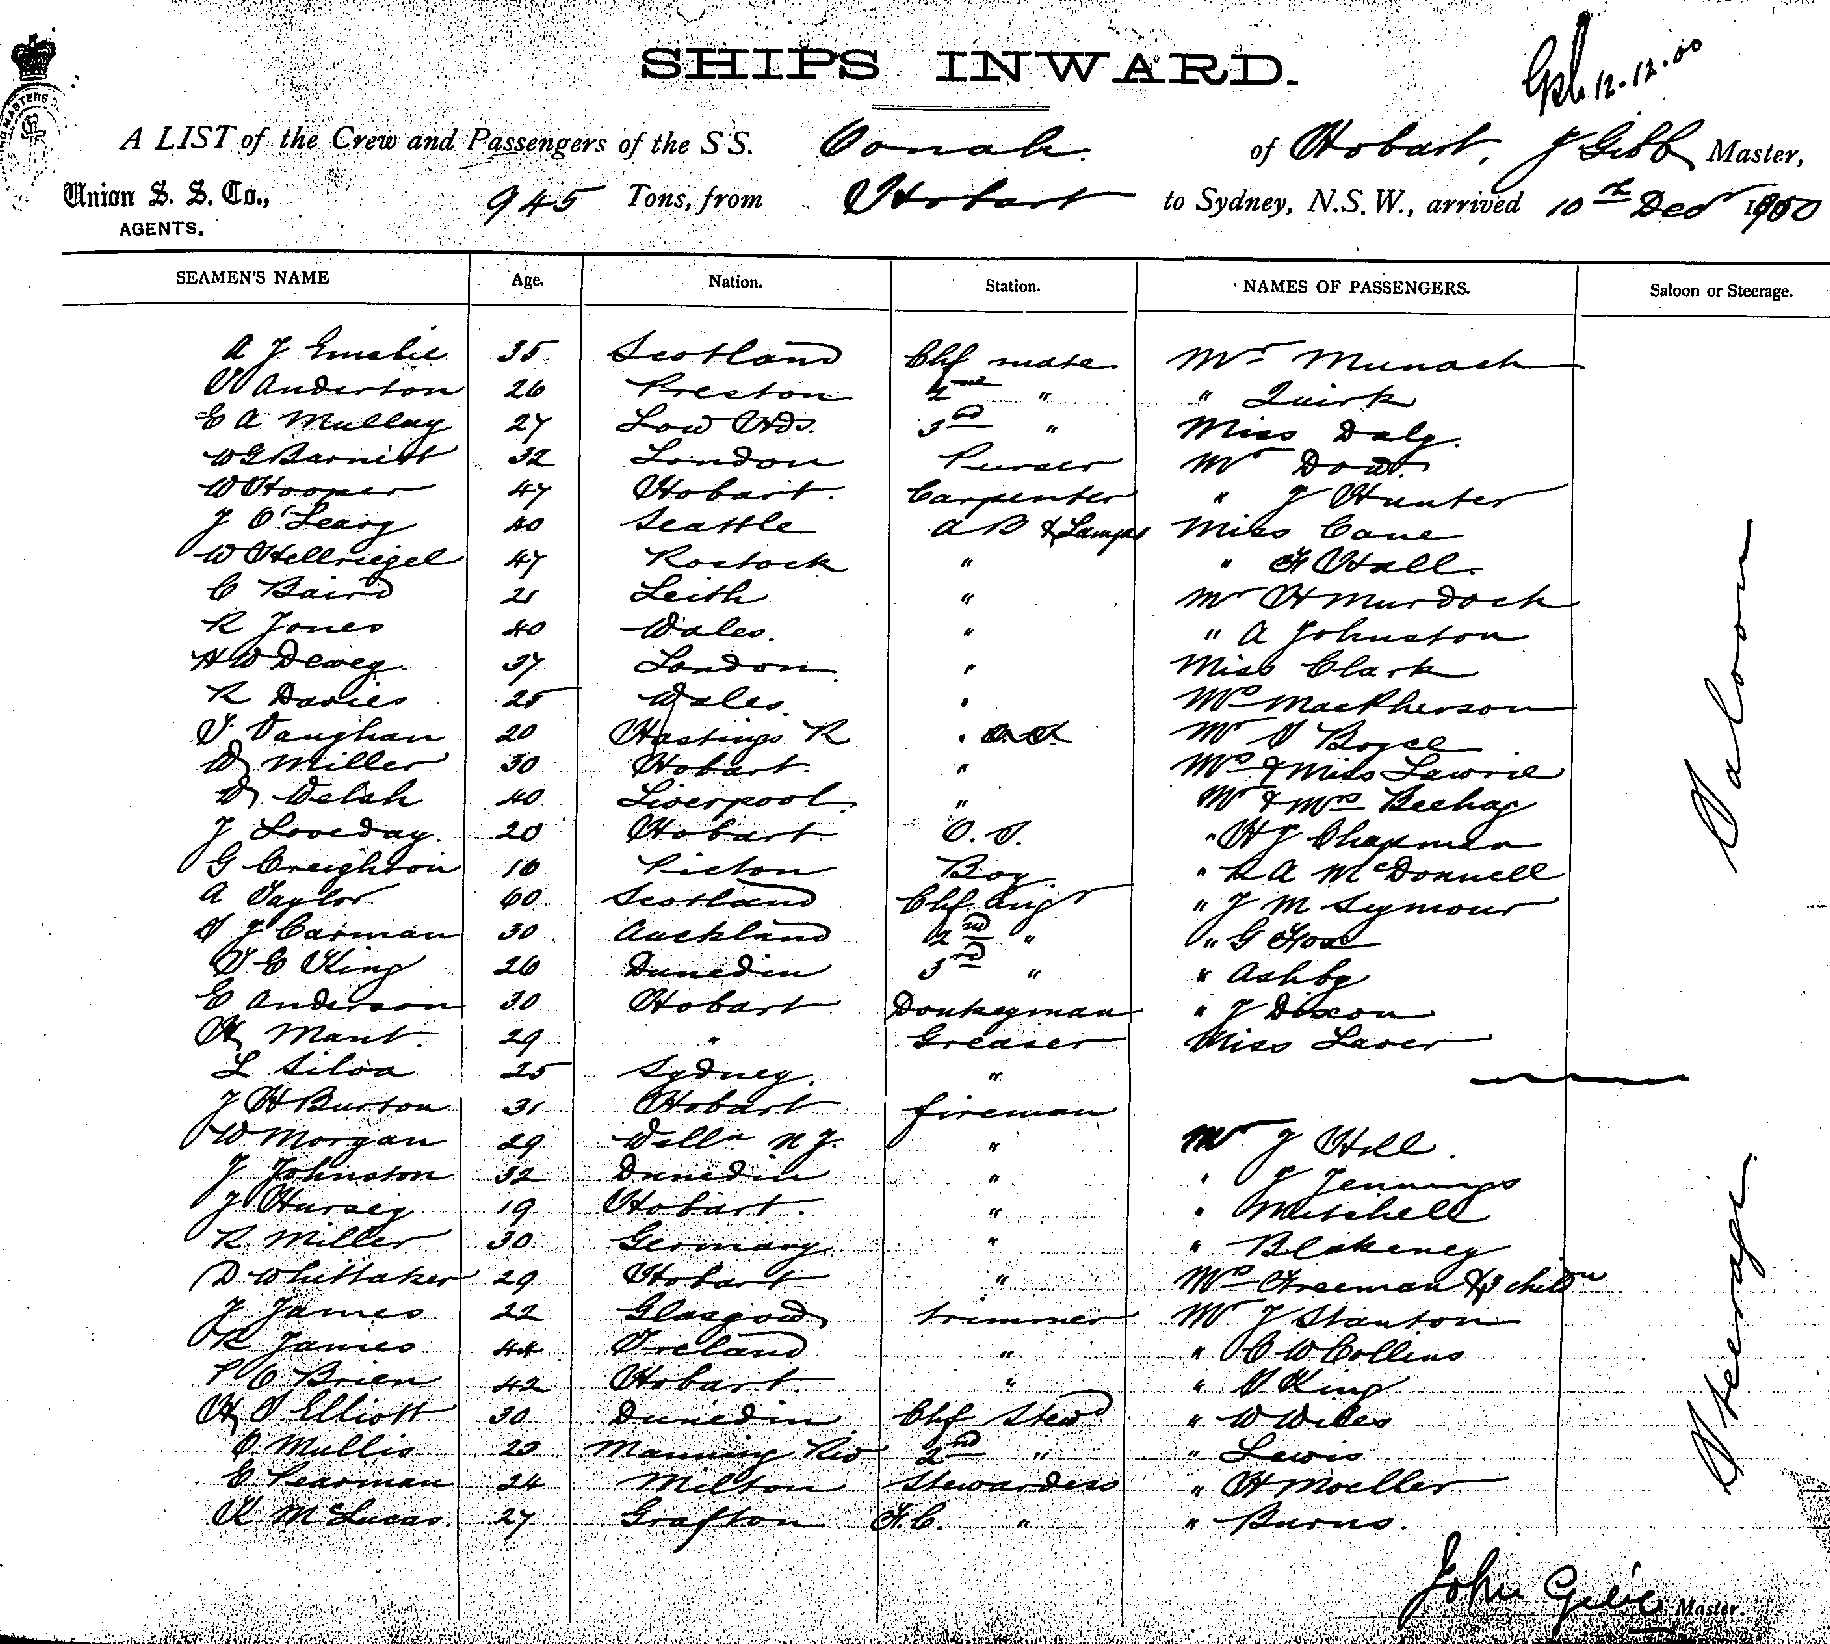 SHIPS INWARD.
12.12.00
A LIST of the Crew and Passengers of the S.S. Oonah. of Hobart, J Gibb Master,
Union S. S. Co., 945 Tons, from Hobart to Sydney, N.S.W., arrived 10th Decr 1900
AGENTS.
SEAMEN'S NAME Age. Nation. Station. NAMES OF PASSENGERS. Saloon or Steerage.
A J 35 Scotland Chf mate Mr Munach
Anderton 26 Preston 2nd " " Quirk
E A Mullay 27 Low Hds. 3rd " Miss Daly.
W G Barnitt 32 London Purser Mr Dowd
W Hooper 47 Hobart. Carpenter " J Hunter
J O'Leary 40 Seattle A B & Lamps Miss Cane
W Hellriegel 47 Rostock " " F Hall.
C Baird 21 Leith " Mr H Murdoch
R Jones 40 Wales. " " A Johnston
H W Dewey 37 London " Miss Clark
R Davies 25 Wales. " Mrs MacPherson
Vaughan 20 Hastings R " Mr S Boyce
W Miller 30 Hobart. " Mrs & Miss Lawrie
W Welsh 40 Liverpool. " Mr & Mrs Beehag
J Loveday. 20 Hobart O. S. " H J Chapman
G Creighton 16 Picton Boy. " R A McDonnell
A Taylor 60 Scotland Chf Engr " J M Seymour
S J Carman 30 Auckland 2nd " " G Fox
S E King 26 Dunedin 3rd " " Ashby
E Anderson 30 Hobart Donkeyman " J Dixon
H Mant. 29 " Greaser Miss Laver
L Silva 25 Sydney. "
J H Burton 31 Hobart fireman
W Morgan 29 N Z. " Mr J Hill.
J Johnston 32 Dunedin " " J Jennings
J Hursey 19 Hobart. " " Mitchell
R Miller 30 Germany " " Blakeney
D Whittaker 29 Hobart " Mrs Freeman & 3 childn
J James 22 Glasgow trimmer Mr J Stanton
R James 44 Ireland " " C W Collins
P O Brien 42 Hobart. " " S King
H S Elliott 30 Dunedin Chf Stewd " W Wiles
S Mullis 23 Manning Riv 2nd " " Lewis
C Pearman 24 Milton Stewardess " H Moeller
K McLucas. 27 Grafton F.C. " " Burns.
Saloon
Steerage.
John Gibb Master.